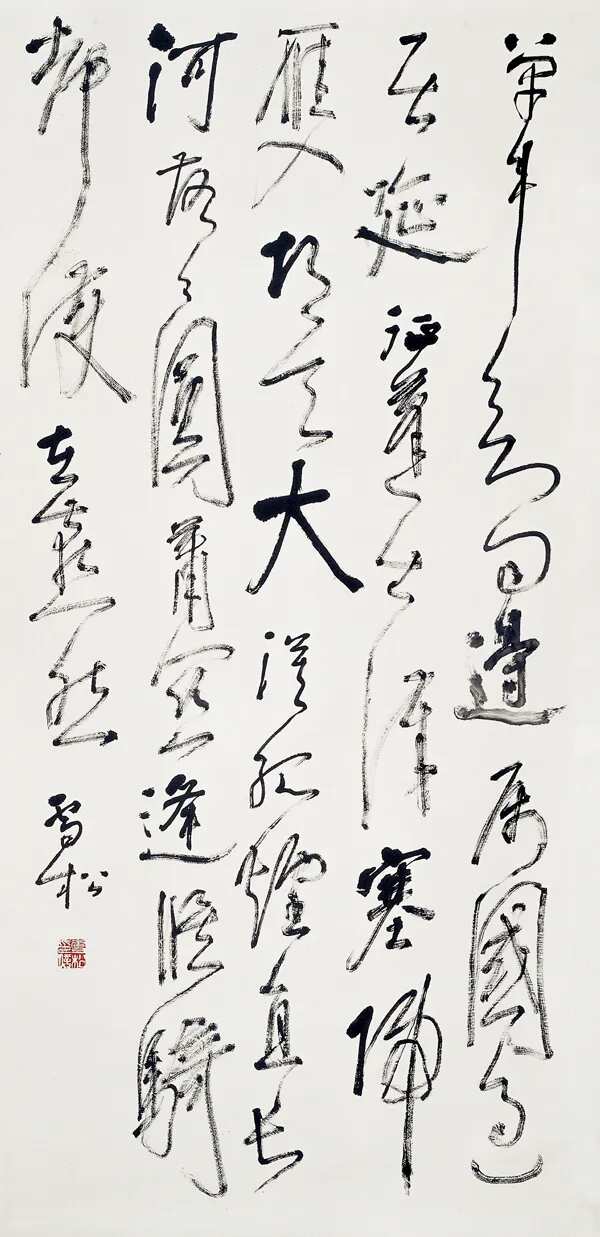 單車欲問邊属國過
居延征蓬出漢塞歸
雁入胡天大漠孤煙直長
河落日圓蕭關逢候騎
都護在燕然 雪松